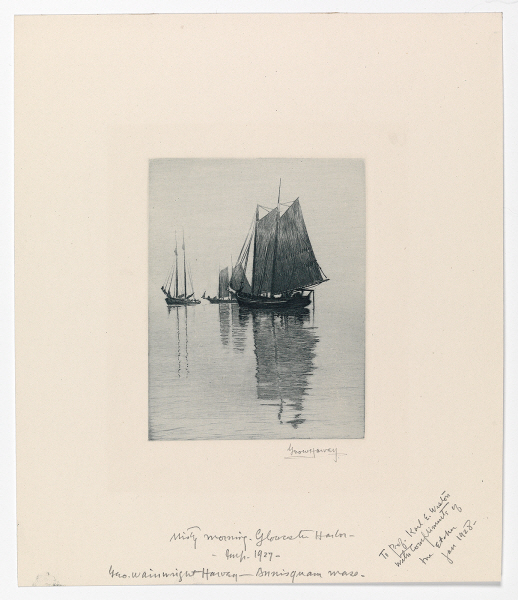 GeoWHarvey
Misty morning. Gloucester Harbor -
- Imp. 1927 -
Geo. Wainwright Harvey — Annisquam mass.
To Prof. Karl E. Weston
with compliments of
the Etcher
Jan 1928 -